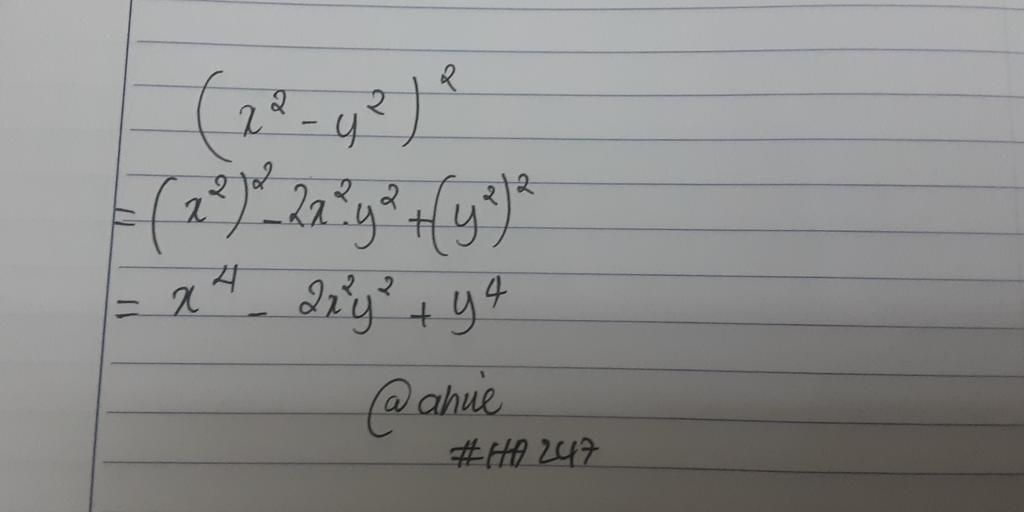 (x² - y²)²
= (x²)² - 2x².y² + (y²)²
= x⁴ - 2x²y² + y⁴
@anue
#HA247